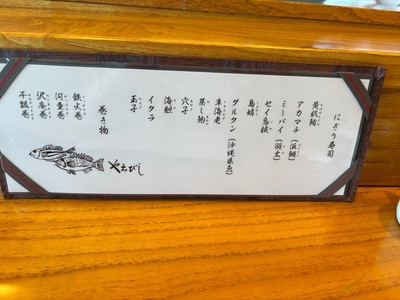 にぎり寿司
黄肌鮪
アカマチ(浜鯛)
ミーバイ(羽太)
セイ烏賊
島蛸
グルクン(沖縄県魚)
車海老
蒸し
穴子
海胆
イクラ
玉子
巻き物
鉄火巻
河童巻
沢庵巻
干瓢巻
やちびし